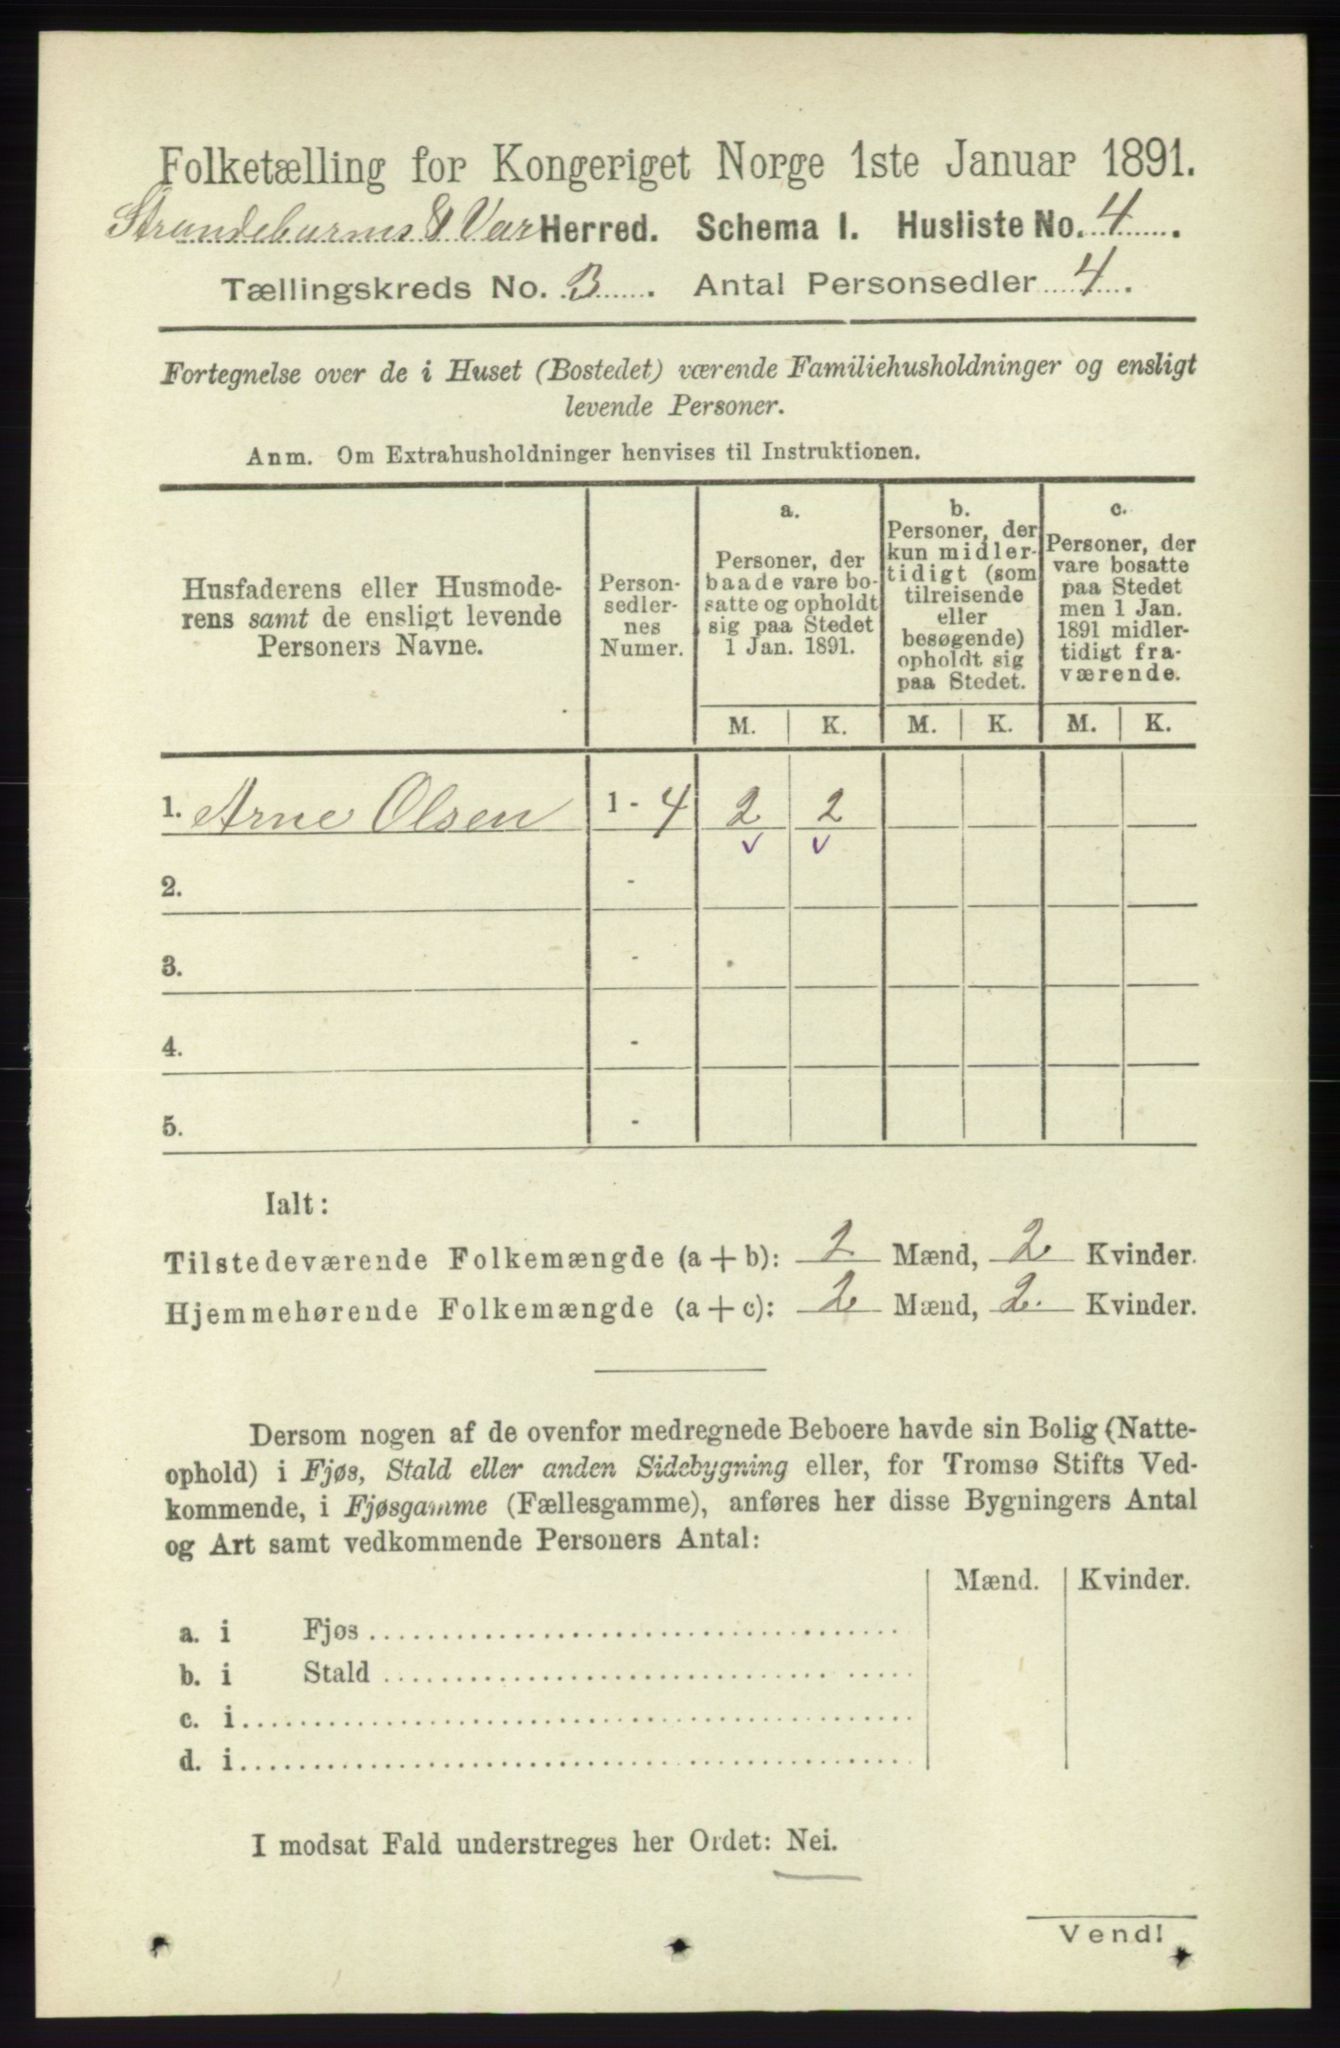 Folketælling for Kongeriget Norge 1ste Januar 1891.
Strandebarms & Var Herred. Schema I. Husliste No. 4.
Tællingskreds No. 3. Antal Personsedler 4.
Fortegnelse over de i Huset (Bostedet) værende Familiehusholdninger og ensligt
levende Personer.
Anm. Om Extrahusholdninger henvises til Instruktionen.
Husfaderens eller Husmode-
rens samt de ensligt levende
Personers Navne.
Person-
sedler-
nes
Numer.
a.
Personer, der
baade vare bo-
satte og opholdt
sig paa Stedet
1 Jan. 1891.
b.
Personer, der
kun midler-
tidigt (som
tilreisende
eller
besøgende)
opholdt sig
paa Stedet.
c.
Personer, der
vare bosatte
paa Stedet
men 1 Jan.
1891 midler-
tidigt fra-
værende.
M. K. M. K. M. K.
1. Arne Olsen 1 - 4 2 2
2. -
3. -
4. -
5. -
Ialt:
Tilstedeværende Folkemængde (a + b): 2 Mænd, 2 Kvinder.
Hjemmehørende Folkemængde (a + c): 2 Mænd, 2. Kvinder.
Dersom nogen af de ovenfor medregnede Beboere havde sin Bolig (Natte-
ophold) i Fjøs, Stald eller anden Sidebygning eller, for Tromsø Stifts Ved-
kommende, i Fjøsgamme (Fællesgamme), anføres her disse Bygningers Antal
og Art samt vedkommende Personers Antal:
Mænd. Kvinder.
a. i Fjøs
b. i Stald
c. i
d. i
I modsat Fald understreges her Ordet: Nei.
Vend!